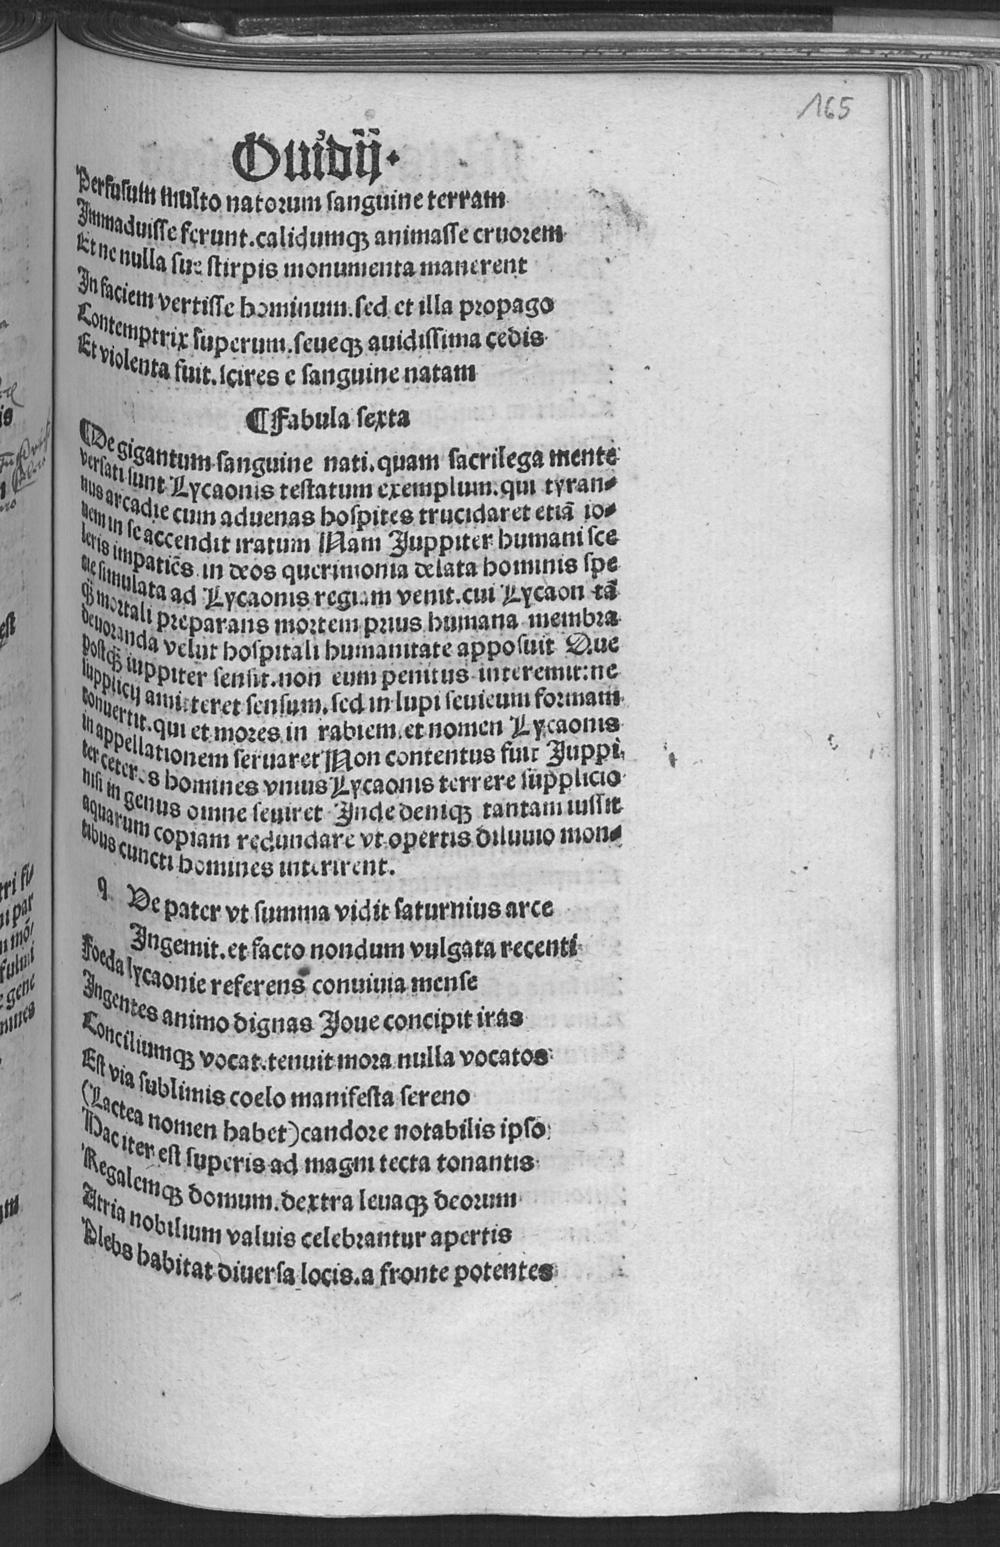 165
Ouidij.
Perfusum multo natorum sanguine terram
Immaduisse ferunt. calidumqȝ animasse cruorem
Et ne nulla sue stirpis monumenta manerent
In faciem vertisse hominum. sed et illa propago
Contemptrix superum. seueqȝ auidissima cedis
Et violenta fuit. scires e sanguine natam
¶Fabula sexta
¶De gigantum sanguine nati. quam sacrilega mente
versati sunt Lycaonis testatum exemplum. qui tyran-
nus arcadie cum aduenas hospites trucidaret etiā io-
uem in se accendit iratum Nam Juppiter humani sce
leris impatiēs. in deos querimonia delata hominis spe
cie simulata ad Lycaonis regiam venit. cui Lycaon tā
qȝ mortali preparans mortem prius humana membra
deuoranda velut hospitali humanitate apposuit Que
postqȝ iuppiter sensit. non eum penitus interemit: ne
supplicij amitteret sensum. sed in lupi seuieum formam
conuertit. qui et mores in rabiem. et nomen Lycaonis
in appellationem seruaret Non contentus fuit Juppi
ter ceteros homines vnius Lycaonis terrere supplicio
nisi in genus omne seuiret Inde deniqȝ tantam iussit
aquarum copiam redundare vt opertis diluuio mon-
tibus cuncti homines interirent.
q De pater vt summa vidit saturnius arce
Ingemit. et facto nondum vulgata recenti
Foeda lycaonie referens conuiuia mense
Ingentes animo dignas Joue concipit iras
Conciliumqȝ vocat. tenuit mora nulla vocatos
Est via sublimis coelo manifesta sereno
(Lactea nomen habet) candore notabilis ipso
Hac iter est superis ad magni tecta tonantis
Regalemqȝ domum. dextra leuaqȝ deorum
Atria nobilium valuis celebrantur apertis
Plebs habitat diuersa locis. a fronte potentes